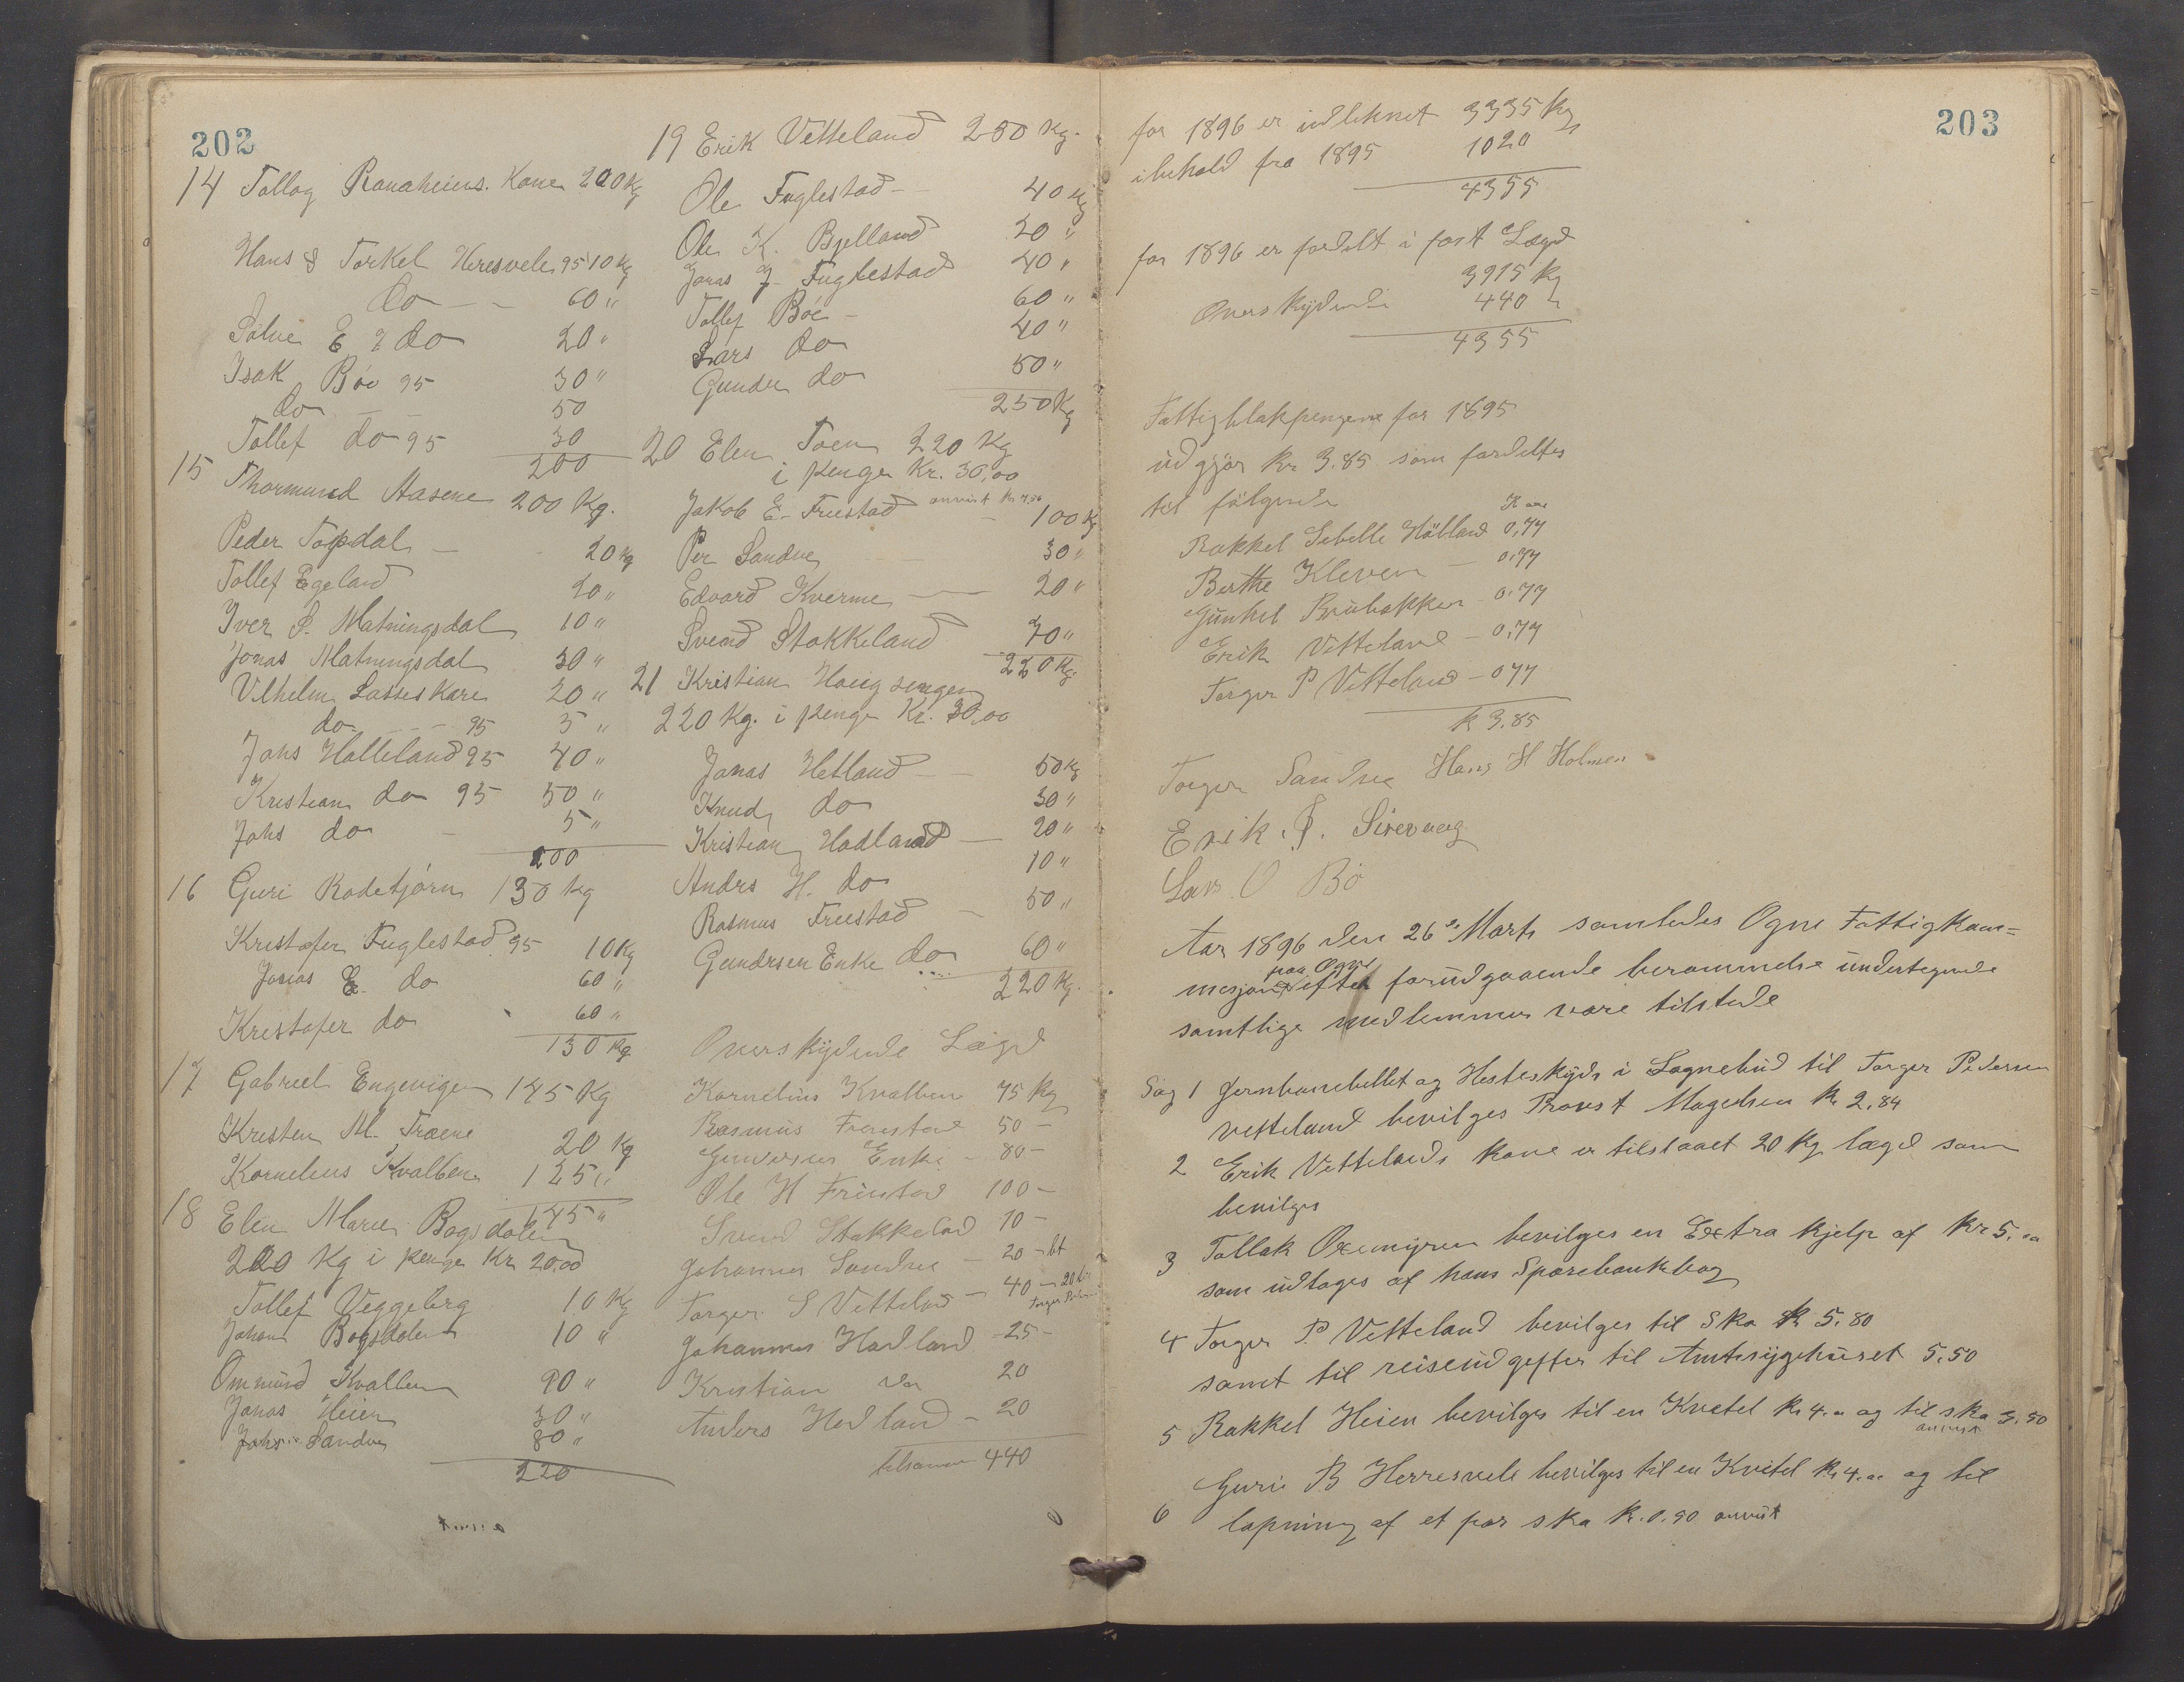 202
14 Tollag Ranaheiens. Kone 200 Kg
Hans & Torkel Heresvele 95 10 Kg
do - - 60 "
Sølve E & do 20 "
Isak Böe 95 30 "
do - - 50
Tollef do 95 30
200
15 Thormund Aasene 200 Kg.
Peder Topdal - 20 Kg
Tollef Egeland 20 "
Iver S. Matningsdal 10 "
Jonas Matningsdal 30 "
Vilhelm Lasseskare 20 "
do - - 95 5 "
Johs Holleland 95 40 "
Kristian do 95 50 "
Johs do - 5 "
200
16 Guri Rodetjörn 130 Kg
Kristofer Fuglestad 95 10 Kg
Jonas E. do 60 "
Kristofer do 60 "
130 Kg
17 Gabriel Engevigen 145 Kg
Kristen M. Traene 20 Kg
Kornelius Kvalben 125 "
145 "
18 Elen Marie Bogsdalen
220 Kg i penge Kr 20.00
Tollef Veggeberg 10 Kg
Johan Bogsdalen 10 "
Ommund Kvalben 90 "
Jonas Heien 30 "
Johs Sandve 80 "
220
anvist
19 Erik Vetteland 250 Kg.
Ole Fuglestad - 40 Kg
Ole K. Bjelland 20 "
Jonas J. Fuglestad 40 "
Tollef Böe - 60 "
Lars do 40 "
Gunder do 50 "
250 Kg
20 Elen Toen 220 Kg
i penge Kr. 30,00
anvist Kr 7.50
Jakob E. Freestad - 100 Kg
Per Sandve - 30 "
Edvard Kverme - 20 "
Svend Stokkeland 70 "
220 Kg.
21 Kristian Haugsengen
220 Kg. i penge Kr. 30,00
Jonas Hetland - 50 Kg
Knud do 30 "
Kristian Hadland - 20 "
Andrs H. do 10 "
Rasmus Freestad - 50 "
Gundersen Enke do 60 "
220 Kg.
Overskydende Lægd
Kornelius Kvalben 75 Kg
Rasmus Freestad 50 -
Gundersens Enke - 80 -
Ole H Friestad 100 -
Svend Stokkelad 10 -
Johannes Sandve - 20 - bt
Torger S Vetteland - 40 - 20 bt
Johannes Hadland 25 -
Kristian do 20
Anders Hadland - 20
tilsamen 440
203
for 1896 er udlignet 3335 Kg
ibehold fra 1895 1020
4355
for 1896 er fordelt i fast Lægd
3915 Kg
Overskydende 440 "
4355
Fattigblokpengene for 1895
udgjör Kr 3.85 som fordeltes
til fölgende
Rakkel Sebelle Hölland 0,77
Berthe Kleven - 0,77
Gunhel Brubakken - 0.77
Erik Vetteland - 0,77
Torger P Vetteland - 077
k 3.85
Torger Sandve Hans H Holmen
Erik. P. Sirevaag
Lars O Bö
Aar 1896 den 26de Marts samledes Ogne Fattigkom=
paa Ogne
mesjon efter forudgaaende berammelse undertegnede
samtlige medlemmer vare tilstede
Sag 1 Jernbanebillet og Hesteskyds i Sognebud til Torger Pedersen
Vetteland bevilges Provst Magelsen Kr 2,84
2 Erik Vettelands kone er tilstaaet 20 Kg lægd som
bevilges
3 Tollak Oxemyren bevilges en Extra hjelp af Kr 5.00
som udtages af hans Sparebankbog
4 Torger P. Vetteland bevilges til Sko Kr 5.80
samt til reiseudgifter til Amtssygehuset 5,50
5 Rakkel Heien bevilges til en Kvetel Kr 4.00 og til sko 3,50
anvist
6 Guri B Herresvele bevilges til en Kvitel Kr 4.00 og til
lapning af et par sko Kr. 0.90 anvist